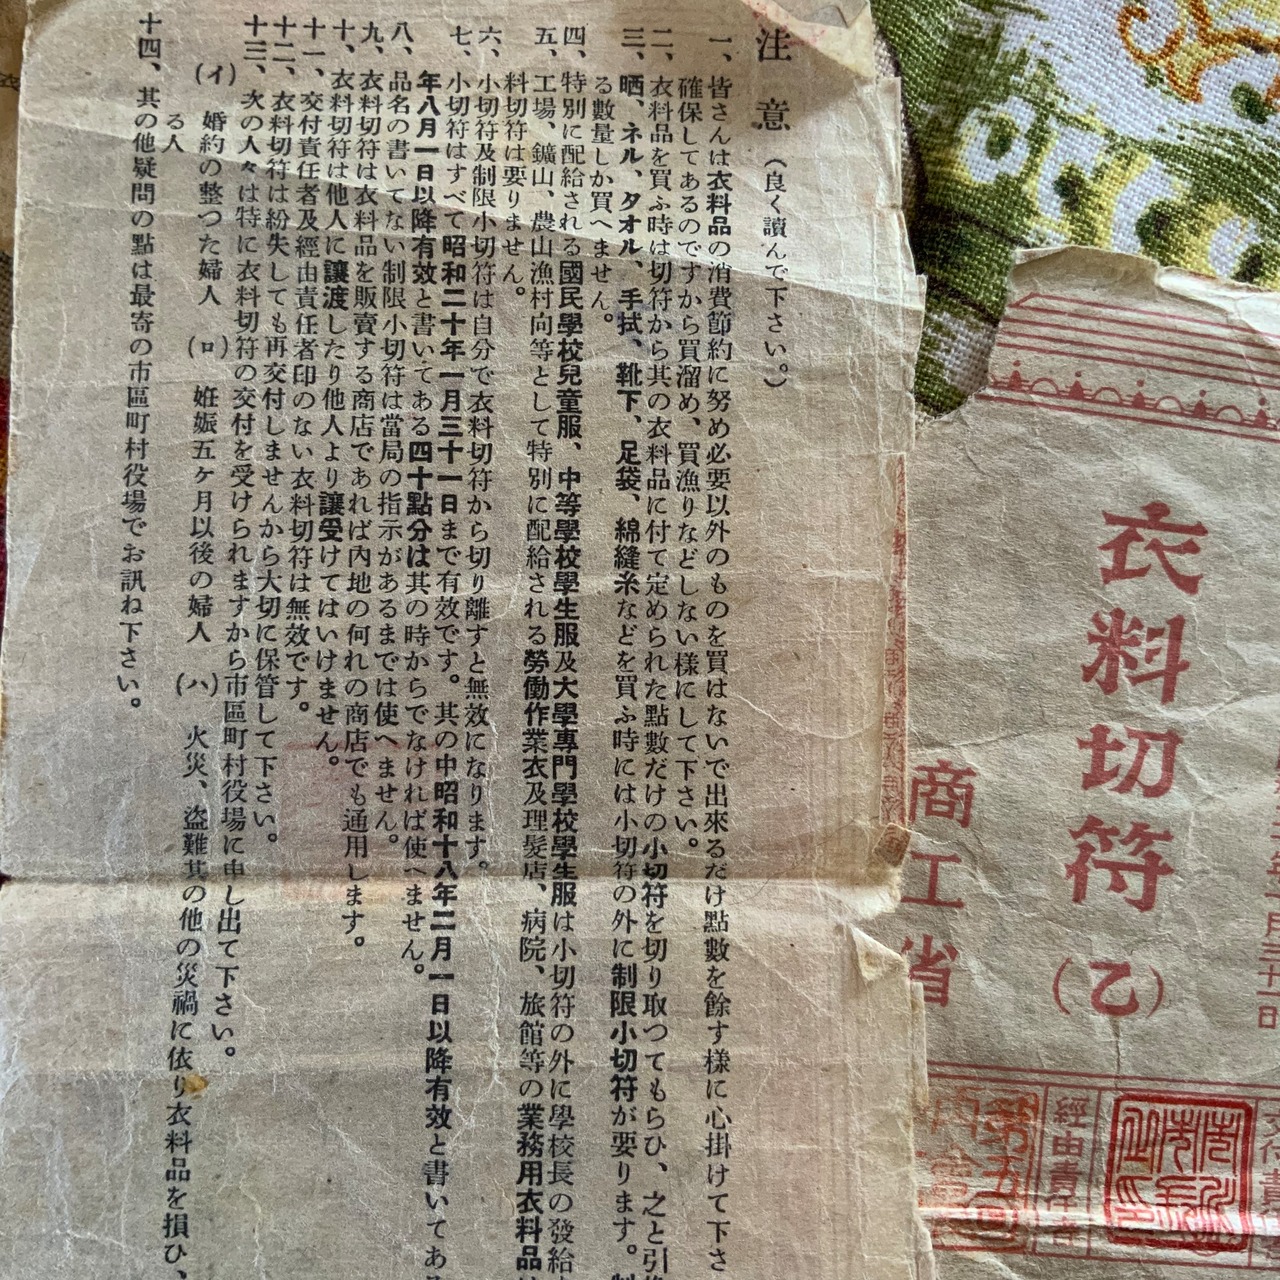 衣料切符（乙）
商工省
經由責任者
注意（良く讀んで下さい。）
一、皆さんは衣料品の消費節約に努め必要以外のものを買はないで出來るだけ點數を餘す樣に心掛けて下さ
確保してあるのですから買溜め、買漁りなどしない樣にして下さい。
二、衣料品を買ふ時は切符から其の衣料品に付て定められた點數だけの小切符を切り取つてもらひ、之と引
三、晒、ネル、タオル、手拭、靴下、足袋、綿縫糸などを買ふ時には小切符の外に制限小切符が要ります。
る數量しか買へません。
四、特別に配給される國民學校兒童服、中等學校學生服及大學專門學校學生服は小切符の外に學校長の發給
五、工場、鑛山、農山漁村向等として特別に配給される勞働作業衣及理髮店、病院、旅館等の業務用衣料品
料切符は要りません。
六、小切符及制限小切符は自分で衣料切符から切り離すと無效になります。
七、小切符はすべて昭和二十年一月三十一日まで有效です。其の中昭和十八年二月一日以降有效と書いてあ
年八月一日以降有效と書いてある四十點分は其の時からでなければ使へません。
八、品名の書いてない制限小切符は當局の指示があるまでは使へません。
九、衣料切符は衣料品を販賣する商店であれば內地の何れの商店でも通用します。
十、衣料切符は他人に讓渡したり他人より讓受けてはいけません。
十一、交付責任者及經由責任者印のない衣料切符は無效です。
十二、衣料切符は紛失しても再交付しませんから大切に保管して下さい。
十三、次の人々は特に衣料切符の交付を受けられますから市區町村役場に申し出て下さい。
（イ）婚約の整つた婦人　（ロ）姙娠五ケ月以後の婦人　（ハ）火災、盜難其の他の災禍に依り衣料品を損ひ、
る人
十四、其の他疑問の點は最寄の市區町村役場でお訊ね下さい。